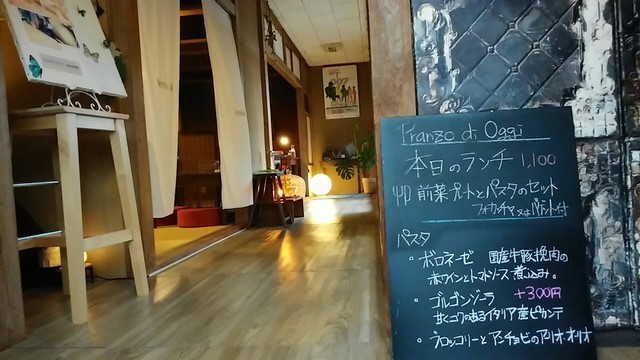 Pranzo di Oggi
本日のランチ 1,100
前菜プレートとパスタのセット
フォカッチャ 又は バケット付
パスタ
・ボロネーゼ 国産牛豚挽肉の
赤ワインとトマトソース煮込み。
・ゴルゴンゾーラ +300円
サンコウのあるイタリア産ピカンテ
・ブロッコリーとアンチョビのアーリオ・オーリオ